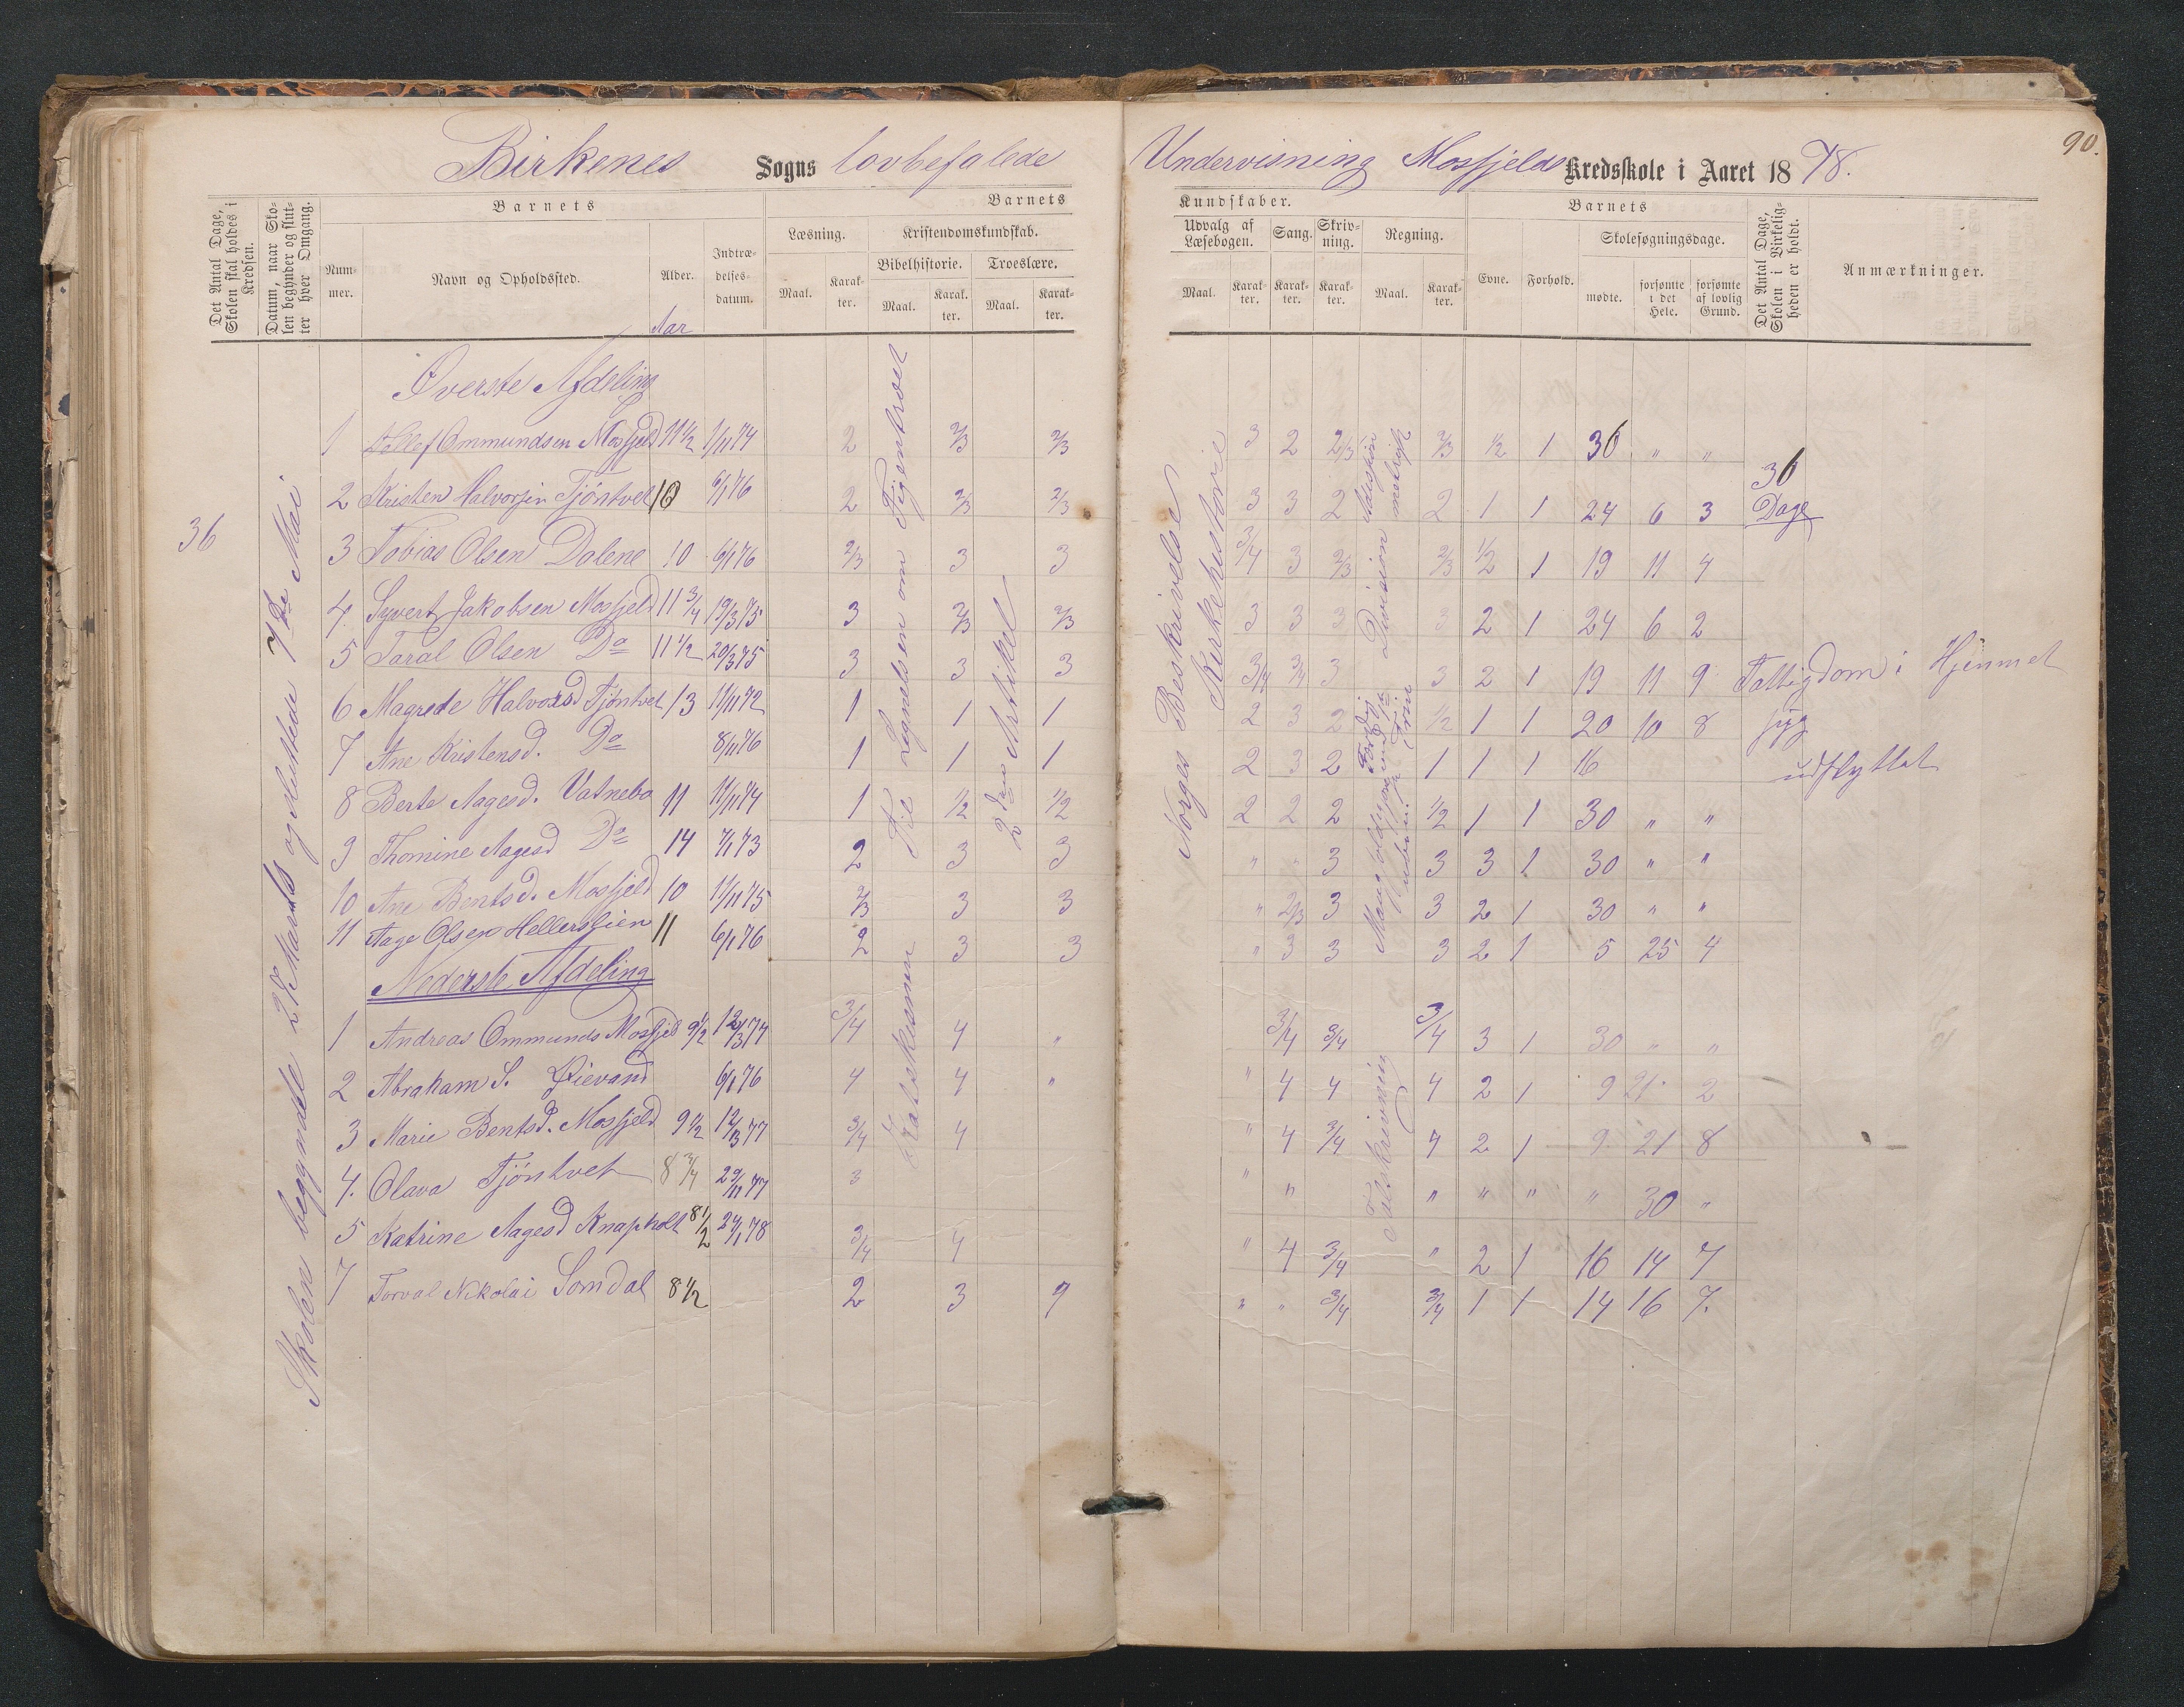 90.
Birkenes Sogns lovbefalede Undervisning Mosfjelds Kredsskole i Aaret 1878.
Det Antal Dage, Skolen skal holdes i Kredsen.
Datum, naar Skolen begynder og slutter hver Omgang.
Barnets
Nummer.
Navn og Opholdssted.
Alder.
Aar
Indtrædelsesdatum.
Barnets
Læsning.
Maal.
Karakter.
Kristendomskundskab.
Bibelhistorie.
Maal.
Karakter.
Troeslære.
Maal.
Karakter.
Kundskaber.
Udvalg af Læsebogen.
Maal.
Karakter.
Sang.
Karakter.
Skrivning.
Karakter.
Regning.
Maal.
Karakter.
Barnets
Evne.
Forhold.
Skolesøgningsdage.
mødte.
forsømte i det Hele.
forsømte af lovlig Grund.
Det Antal Dage, Skolen i Virkeligheden er holdt.
Anmærkninger.
36
Skolen begyndte 28 Marts og sluttede 7de Mai
Til Lignelsen om Figentræet
2den Artikel
Norges Beskrivelse
Kirkehistorie
Division
36 Dage
Øverste Afdeling
1 Ommundsen Mosfjeld 11 1/2 1/11 74 2 2/3 2/3 3 2 2/3 2/3 1/2 1 36 " "
2 Kristen Halvorsen Tjöntvet 10 6/1 76 2 2/3 2/3 3 3 2 2 1 1 24 6 3
3 Tobias Olsen Dalene 10 6/1 76 2/3 3 3 3/4 3 2/3 2/3 1/2 1 19 11 4
4. Syvert Jakobsen Mosfjeld 11 3/4 19/3 75 3 2/3 2/3 3 3 3 3 2 1 24 6 2
5 Taral Olsen Do 11 1/2 20/3 75 3 3 3 3/4 3/4 3 3 2 1 19 11 9 Fattigdom i Hjemmet
6 Magrede Halvorsd Tjöntvet 13 11/11 72 1 1 1 2 3 2 1/2 1 1 20 10 8 syg
7 Ane Kristensd. Do 8/11 76 1 1 1 2 3 2 1 1 1 16 udflyttet
8 Berte Aagesd. Vatnebo 11 11/11 74 1 1/2 1/2 2 2 2 1/2 1 1 30 " "
9 Thomine Aagesd Do 14 7/1 73 2 3 3 " " 3 3 3 1 30 " "
10 Ane Bentsd. Mosfjeld 10 11/11 75 2/3 3 3 " 2/3 3 3 2 1 30 " "
11 Aage Olsen Hellerslien 11 6/1 76 2 3 3 " 3 3 3 2 1 5 25 4
Nederste Afdeling
Talskrivning
1 Andreas Ommunds Mosfjeld 9 1/2 12/3 74 3/4 4 " 3/4 3/4 3/4 3 1 30 " "
2 Abraham S. Øievand 6/1 76 4 4 " " 4 4 4 2 1 9 21 2
3 Marie Bentsd. Mosfjeld 9 1/2 12/3 77 3/4 4 " 4 3/4 4 2 1 9 21 8
4. Olava Tjöntvet 8 3/4 29/11 77 3 " " " " " " 30 "
5 Katrine Aagesd Knapholt 8 1/2 24/1 78 3/4 4 " 4 3/4 " 2 1 16 14 7
7 Torval Nikolai Somdal 8 1/2 2 3 9 " " 3/4 3/4 1 1 14 16 7.